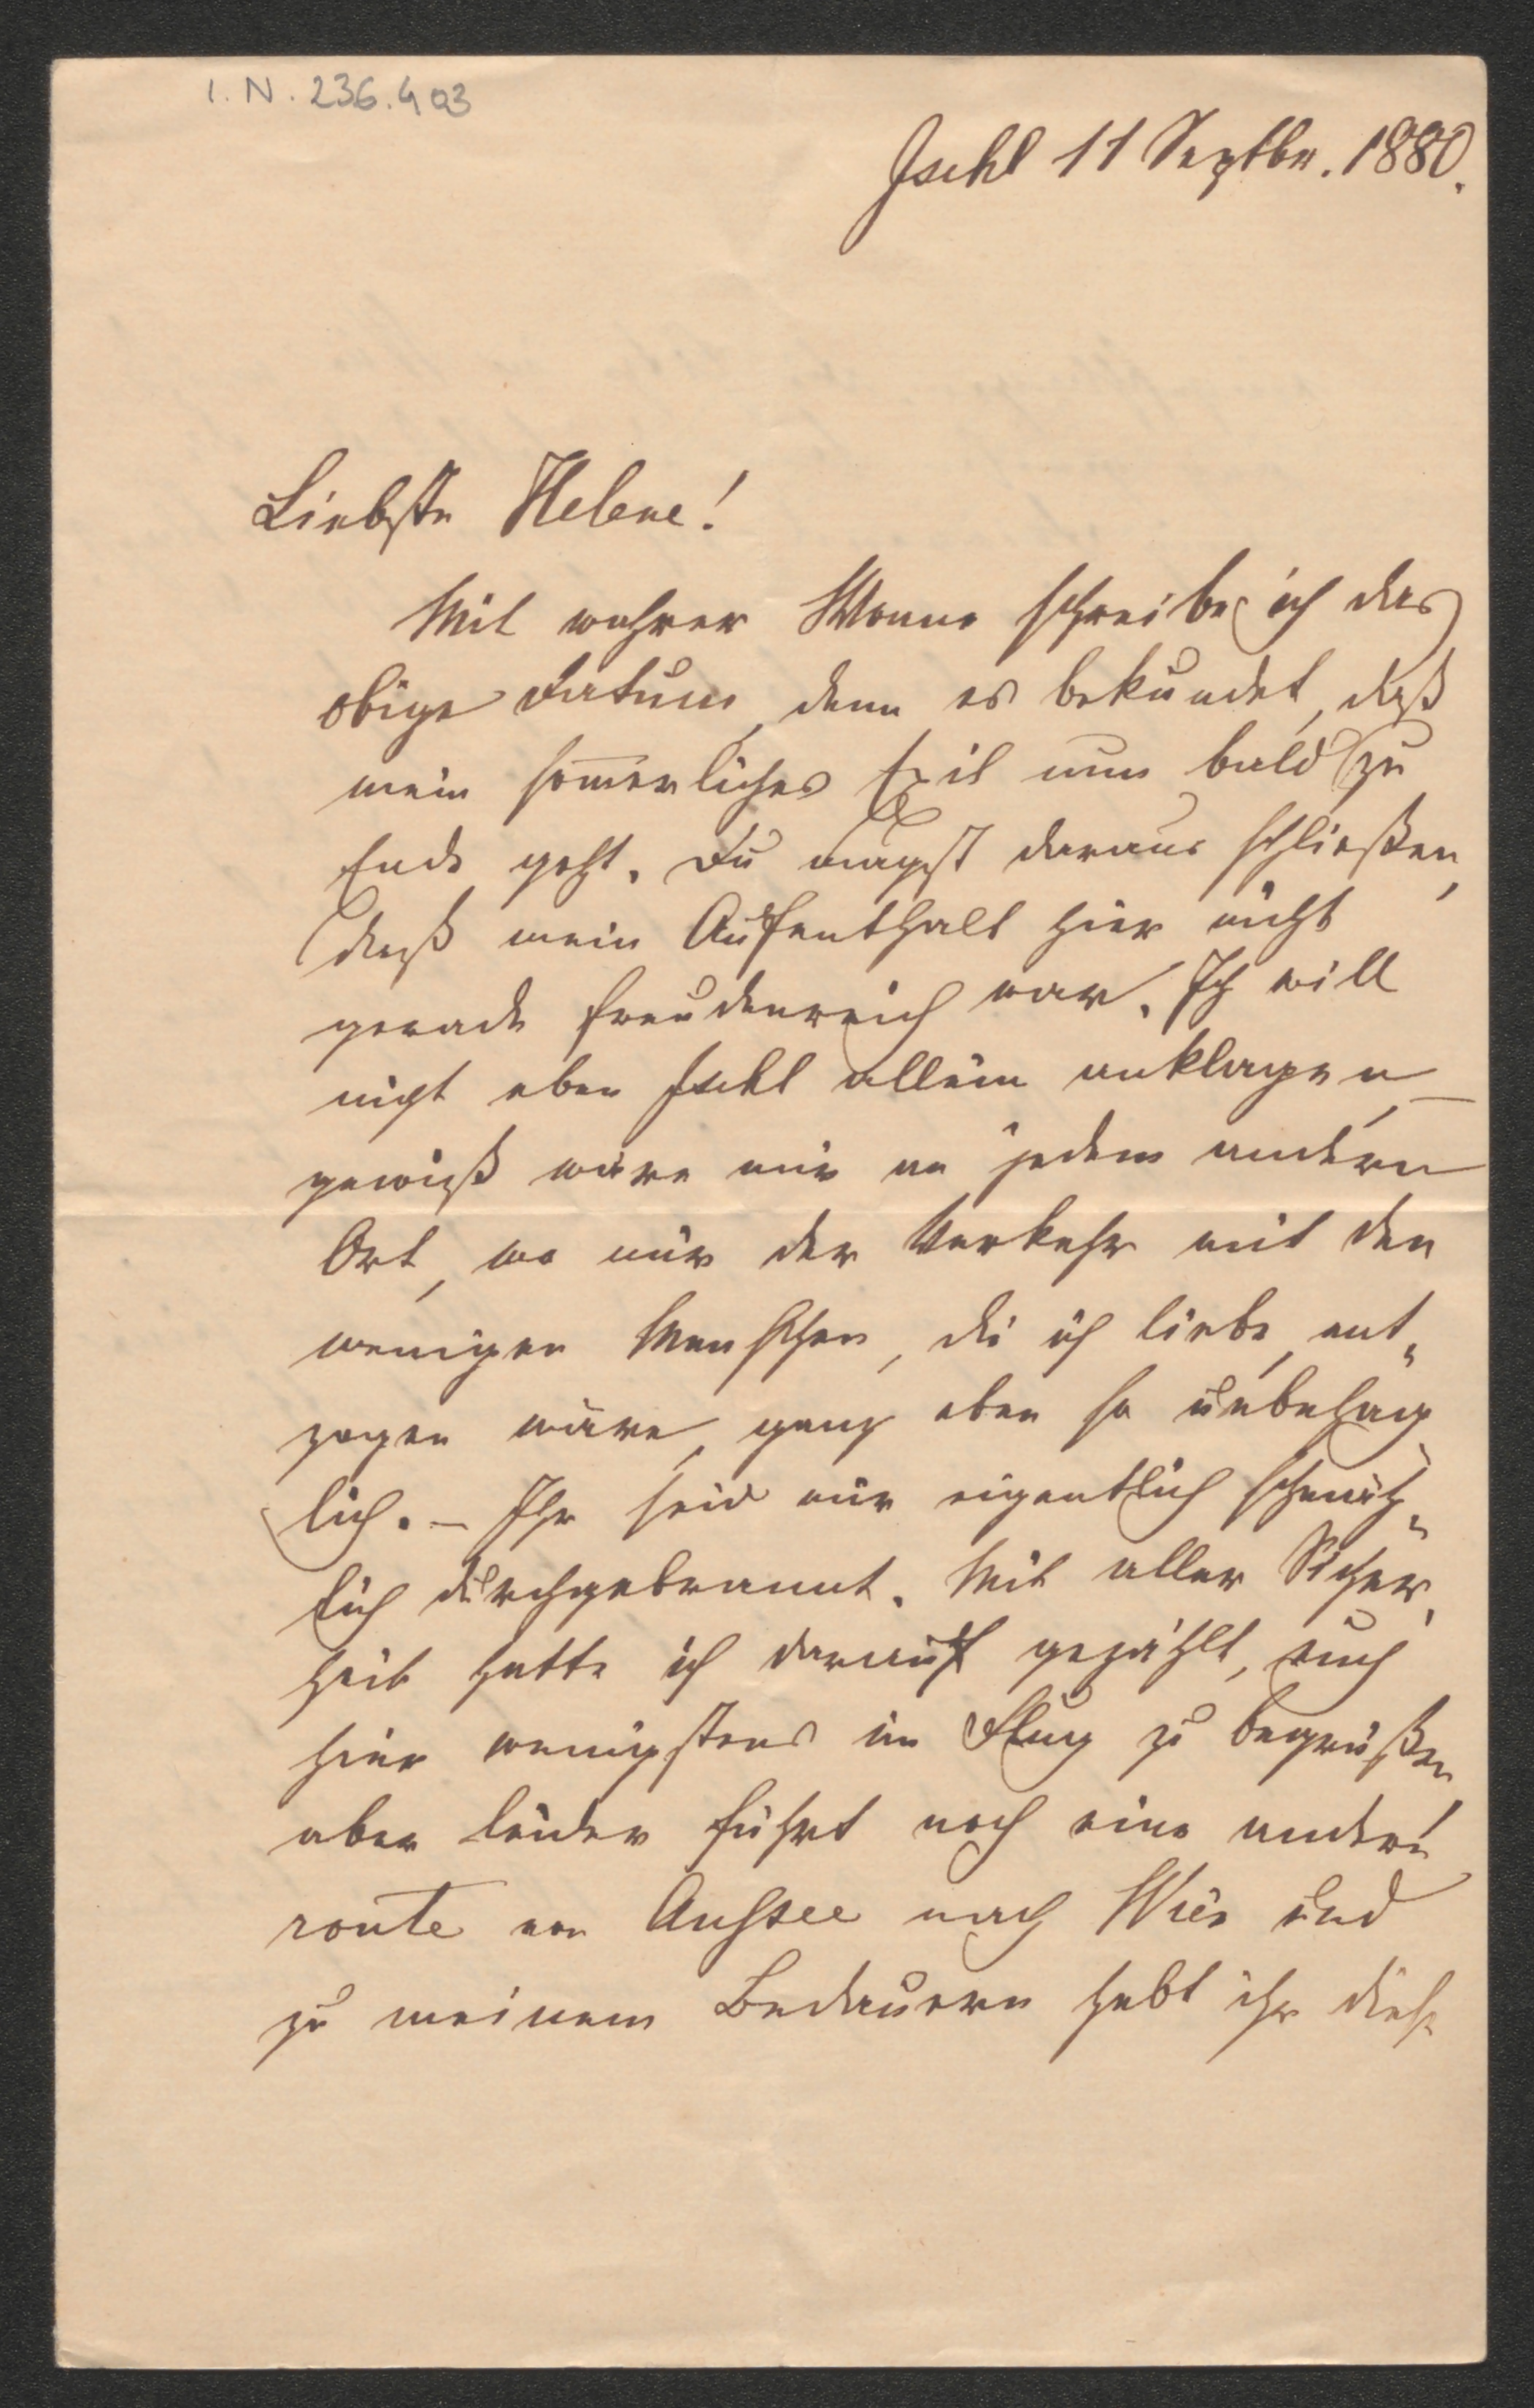 I.N. 236.403
Ischl 11 Septbr. 1880.
Liebste Helene!
Mit wahrer Wonne schreibe ich das
obige Datum, denn es bekundet, daß
mein som̅erliches Exil nun bald zu
Ende geht. Du magst daraus schließen,
daß mein Aufenthalt hier nicht
gerade freudenreich war. Ich will
nicht eben Ischl allein anklagen, –
gewiß wäre mir an jedem andern
Ort, wo mir der Verkehr mit den
wenigen Menschen, die ich liebe, ent„
zogen wäre, ganz eben so unbehag
lich. – Ihr seid mir eigentlich schmäh„
lich durchgebrannt. Mit aller Sicher„
heit hatte ich darauf gezählt, euch
hier wenigstens im Flug zu begrüßen
aber leider führt noch eine andere
route von Aussee nach Wien und
zu meinem Bedauern habt ihr diese